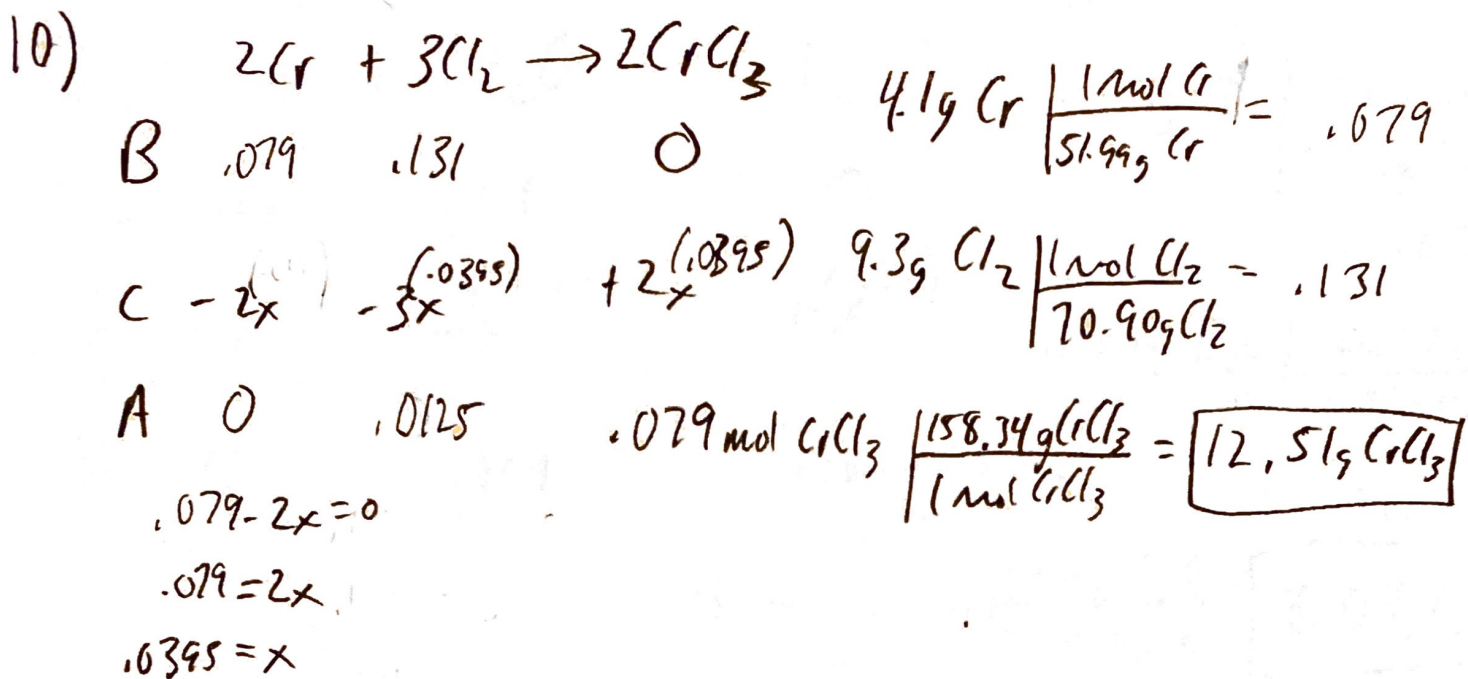 10) 2Cr + 3Cl₂ → 2CrCl₃
4.1g Cr | 1 mol Cr / 51.99g Cr | = .079
B .079 .131 0
C - 2x - 3x(.0395) + 2x(.0395)
9.3g Cl₂ | 1 mol Cl₂ / 70.90g Cl₂ = .131
A 0 .0125
.079 mol CrCl₃ | 158.34g CrCl₃ / 1 mol CrCl₃ = 12.51g CrCl₃
.079 - 2x = 0
.079 = 2x
.0395 = x